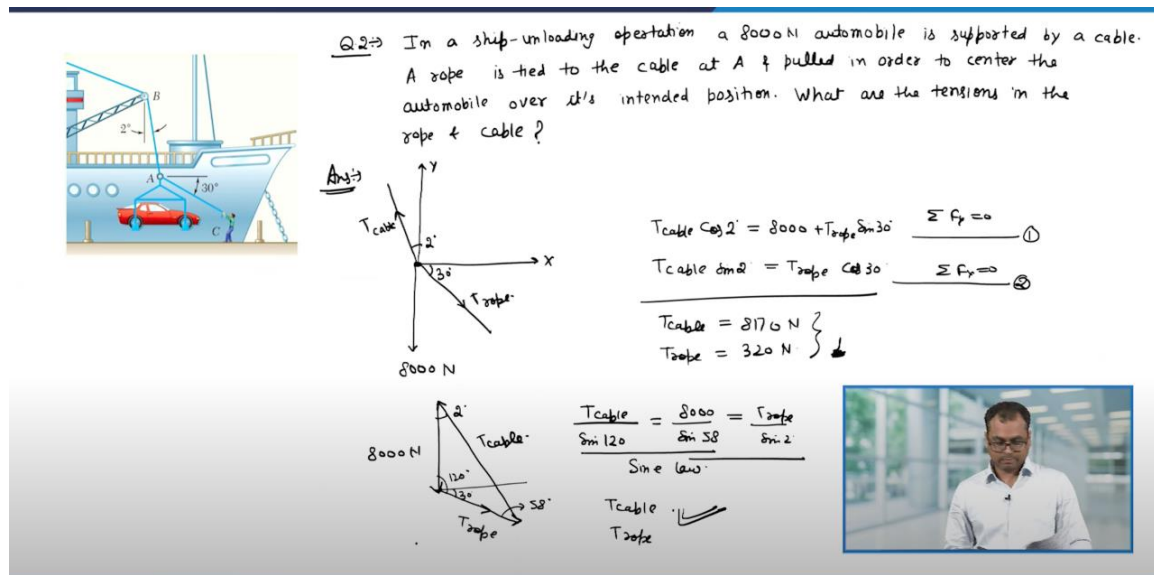 Q2⇒ In a ship-unloading opertation a 8000N automobile is supported by a cable.
A rope is tied to the cable at A & pulled in order to center the
automobile over it's intended position. What are the tensions in the
rope & cable?
B
2°
A
30°
C
Ans:→
Y
T cable
2°
X
30°
T rope.
8000 N
Tcable Cos 2° = 8000 + Trope Sin 30° ΣFy=0 ①
Tcable Sin 2° = Trope Cos 30 ΣFx=0 ②
Tcable = 8170 N
Trope = 320 N
2°
8000 N
Tcable.
120°
30°
58°
Trope
Tcable / Sin 120 = 8000 / Sin 58 = Trope / Sin 2
Sine law.
Tcable
Trope